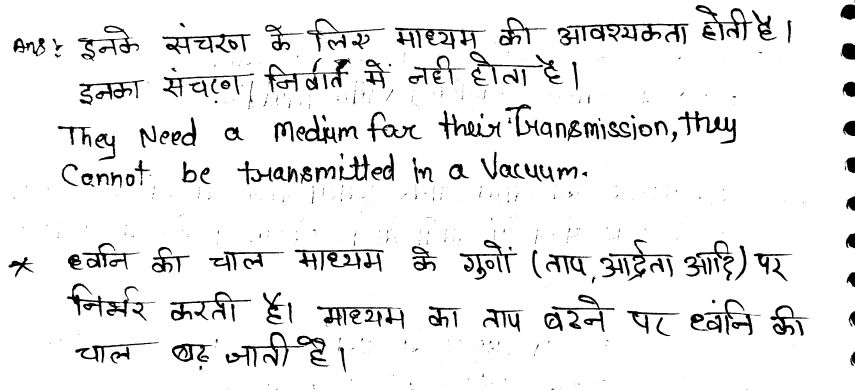 Ans:- इनके संचरण के लिए माध्यम की आवश्यकता होती है।
इनका संचरण निर्वात में नही होता है।
They Need a Medium for their Transmission, they
Cannot be transmitted in a Vacuum.
* ध्वनि की चाल माध्यम के गुणों (ताप, आर्द्रता आदि) पर
निर्भर करती है। माध्यम का ताप बढने पर ध्वंनि की
चाल बढ़ जाती है।